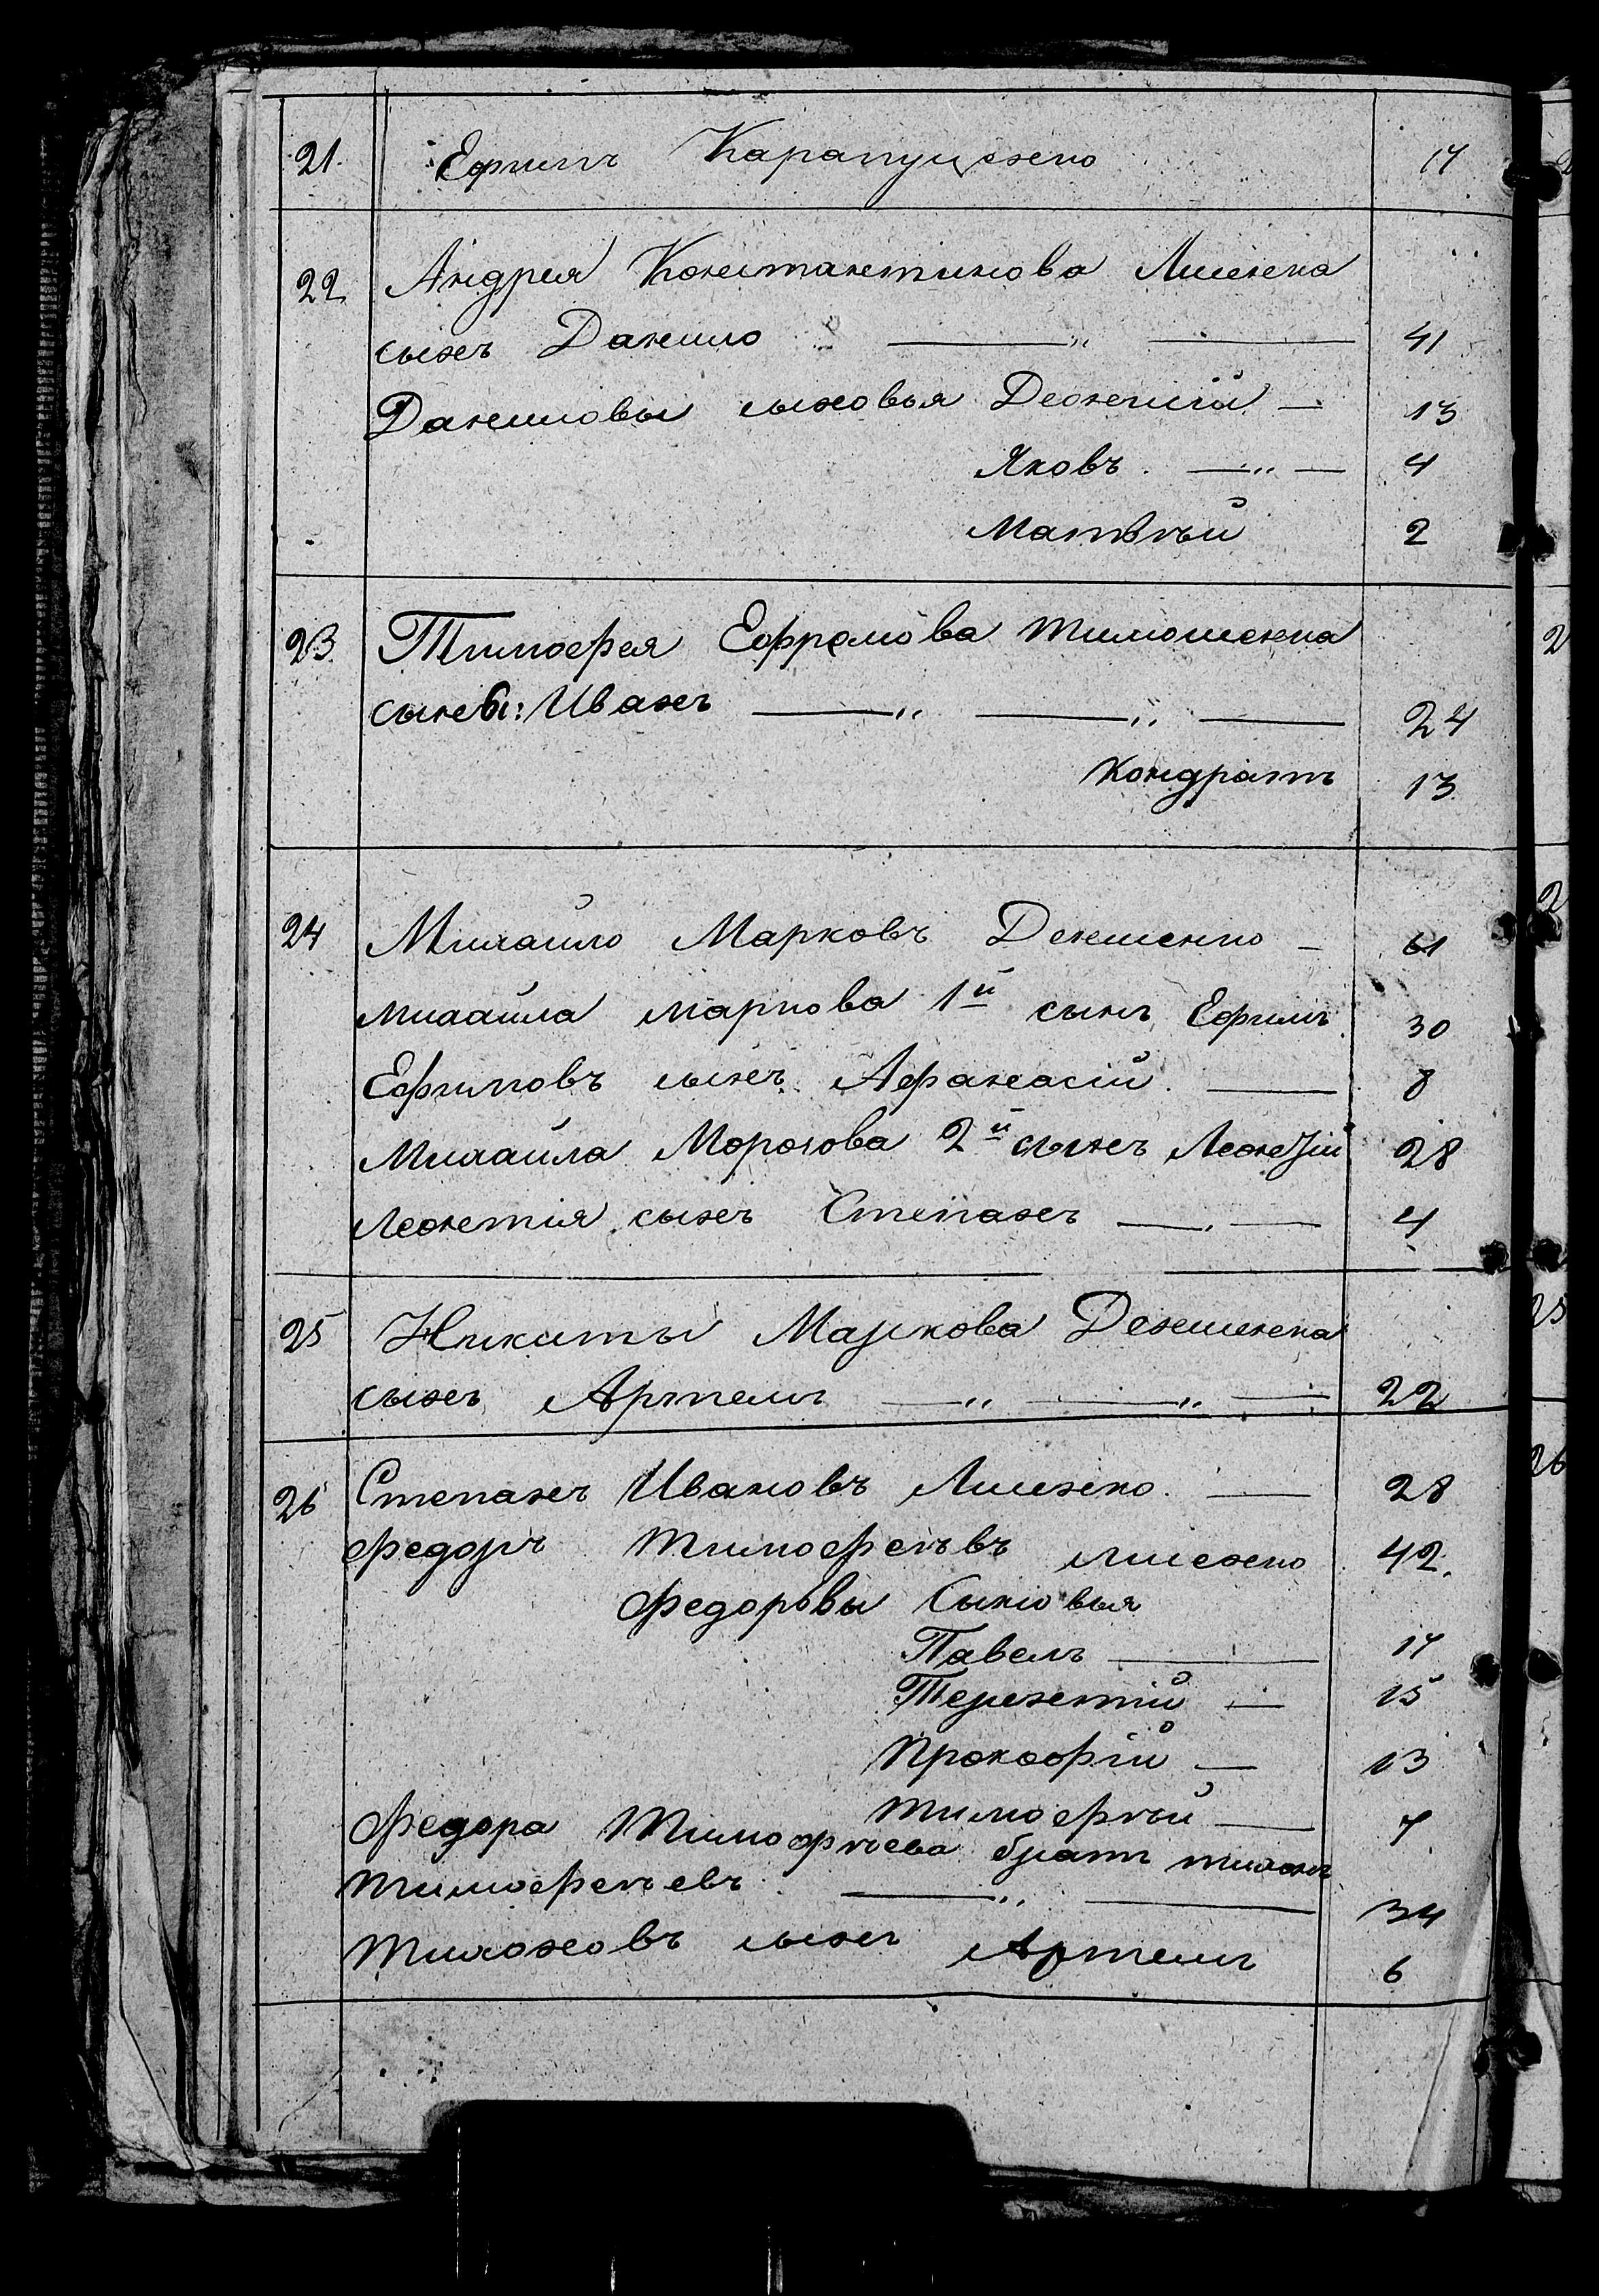 21. Ефимъ Карапущенко 17
22. Андрея Константинова Лисенка
сынъ Данило 41
Даниловы сыновья Деонисій 13
Яковъ 4
Матвѣй 2
23. Тимофея Ефремова Тимошенка
сыны: Иванъ 24
Кондратъ 13
24 Михайло Марковъ Денисенко 61
Михайла Маркова 1й сынъ Ефимъ 30
Ефимовъ сынъ Афанасій 8
Михайла 2й сынъ Леонтій 28
Леонтія сынъ Степанъ 4
25 Никиты Маркова Денисенка
сынъ Артемъ 22
26 Степанъ Ивановъ Лисенко 28
Федоръ Тимофеѣвъ Лисенко 42.
Федоровы Сыновья
Павелъ 17
Терентій 15
Прокофій 13
Тимофѣй 7
Федора Тимофѣева братъ Тихонъ
Тимофеѣевъ 34
Тихоновъ сынъ Артемъ 6